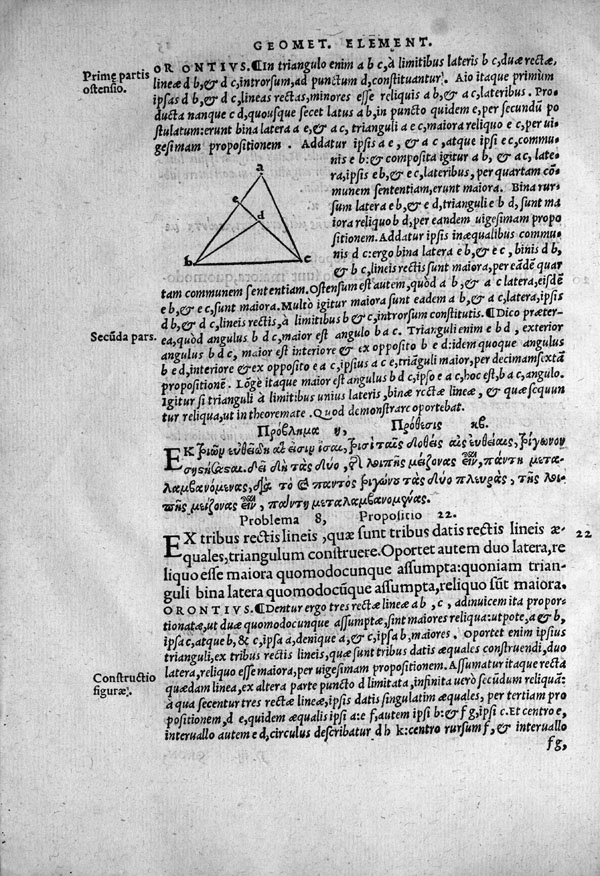 GEOMET. ELEMENT.
Prime partis
ostensio.
ORONTIVS. ¶In triangulo enim a b c, à limitibus lateris b c, duæ rectæ,
lineæ d b, & d c, introrsum, ad punctum d, constituantur. Aio itaque primùm
ipsas d b, & d c, lineas rectas, minores esse reliquis a b, & a c, lateribus. Pro-
ducta nanque c d, quousque secet latus a b, in puncto quidem e, per secundũ po
stulatum: erunt bina latera a e, & a c, trianguli a e c, maiora reliquo e c, per ui-
gesimam propositionem. Addatur ipsis a e, & a c, atque ipsi e c, commu-
nis e b: & composita igitur a b, & a c, late-
ra, ipsis e b, & e c, lateribus, per quartam cõ-
munem sententiam, erunt maiora. Bina rur-
sum latera e b, & e d, trianguli e b d, sunt ma
iora reliquo b d, per eandem uigesimam propo
sitionem. Addatur ipsis inæqualibus commu-
nis d c: ergo bina latera e b, & e c, binis d b,
& b c, lineis rectis sunt maiora, per eãdẽ quar
a
e
d
b
c
tam communem sententiam. Ostensum est autem, quòd a b, & a c latera, eisdẽ
e b, & e c, sunt maiora. Multò igitur maiora sunt eadem a b, & a c, latera, ipsis
d b, & d c, lineis rectis, à limitibus b & c, introrsum constitutis. ¶Dico præter-
Secũda pars.
ea, quòd angulus b d c, maior est angulo b a c. Trianguli enim e b d, exterior
angulus b d c, maior est interiore & ex opposito b e d: idem quoque angulus
b e d, interiore & ex opposito e a c, ipsius a c e, triãguli maior, per decimam sextã
propositionẽ. Lõgè itaque maior est angulus b d c, ipso e a c, hoc est, b a c, angulo.
Igitur si trianguli à limitibus unius lateris, binæ rectæ lineæ, & quæ sequun
tur reliqua, ut in theoremate. Quod demonstrare oportebat.
Πρόβλημα η, Πρόθεσις κβ.
Problema 8, Propositio 22.
EX tribus rectis lineis, quæ sunt tribus datis rectis lineis æ-
22
quales, triangulum construere. Oportet autem duo latera, re
liquo esse maiora quomodocunque assumpta: quoniam trian-
guli bina latera quomodocũque assumpta, reliquo sũt maiora.
ORONTIVS. ¶Dentur ergo tres rectæ lineæ a b, c, adinuicem ita propor-
tionatæ, ut duæ quomodocunque assumptæ, sint maiores reliqua: utpote, a & b,
ipsa c, atque b, & c, ipsa a, denique a, & c, ipsa b, maiores. Oportet enim ipsius
trianguli, ex tribus rectis lineis, quæ sunt tribus datis æquales construendi, duo
latera, reliquo esse maiora, per uigesimam propositionem. Assumatur itaque recta
Constructio
figuræ.
quædam linea, ex altera parte puncto d limitata, infinita uerò secũdum reliquã:
à qua secentur tres rectæ lineæ, ipsis datis singulatim æquales, per tertiam pro
positionem, d e, quidem æqualis ipsi a: e f, autem ipsi b: & f g, ipsi c. Et centro e,
interuallo autem e d, circulus describatur d h k: centro rursum f, & interuallo
fg,